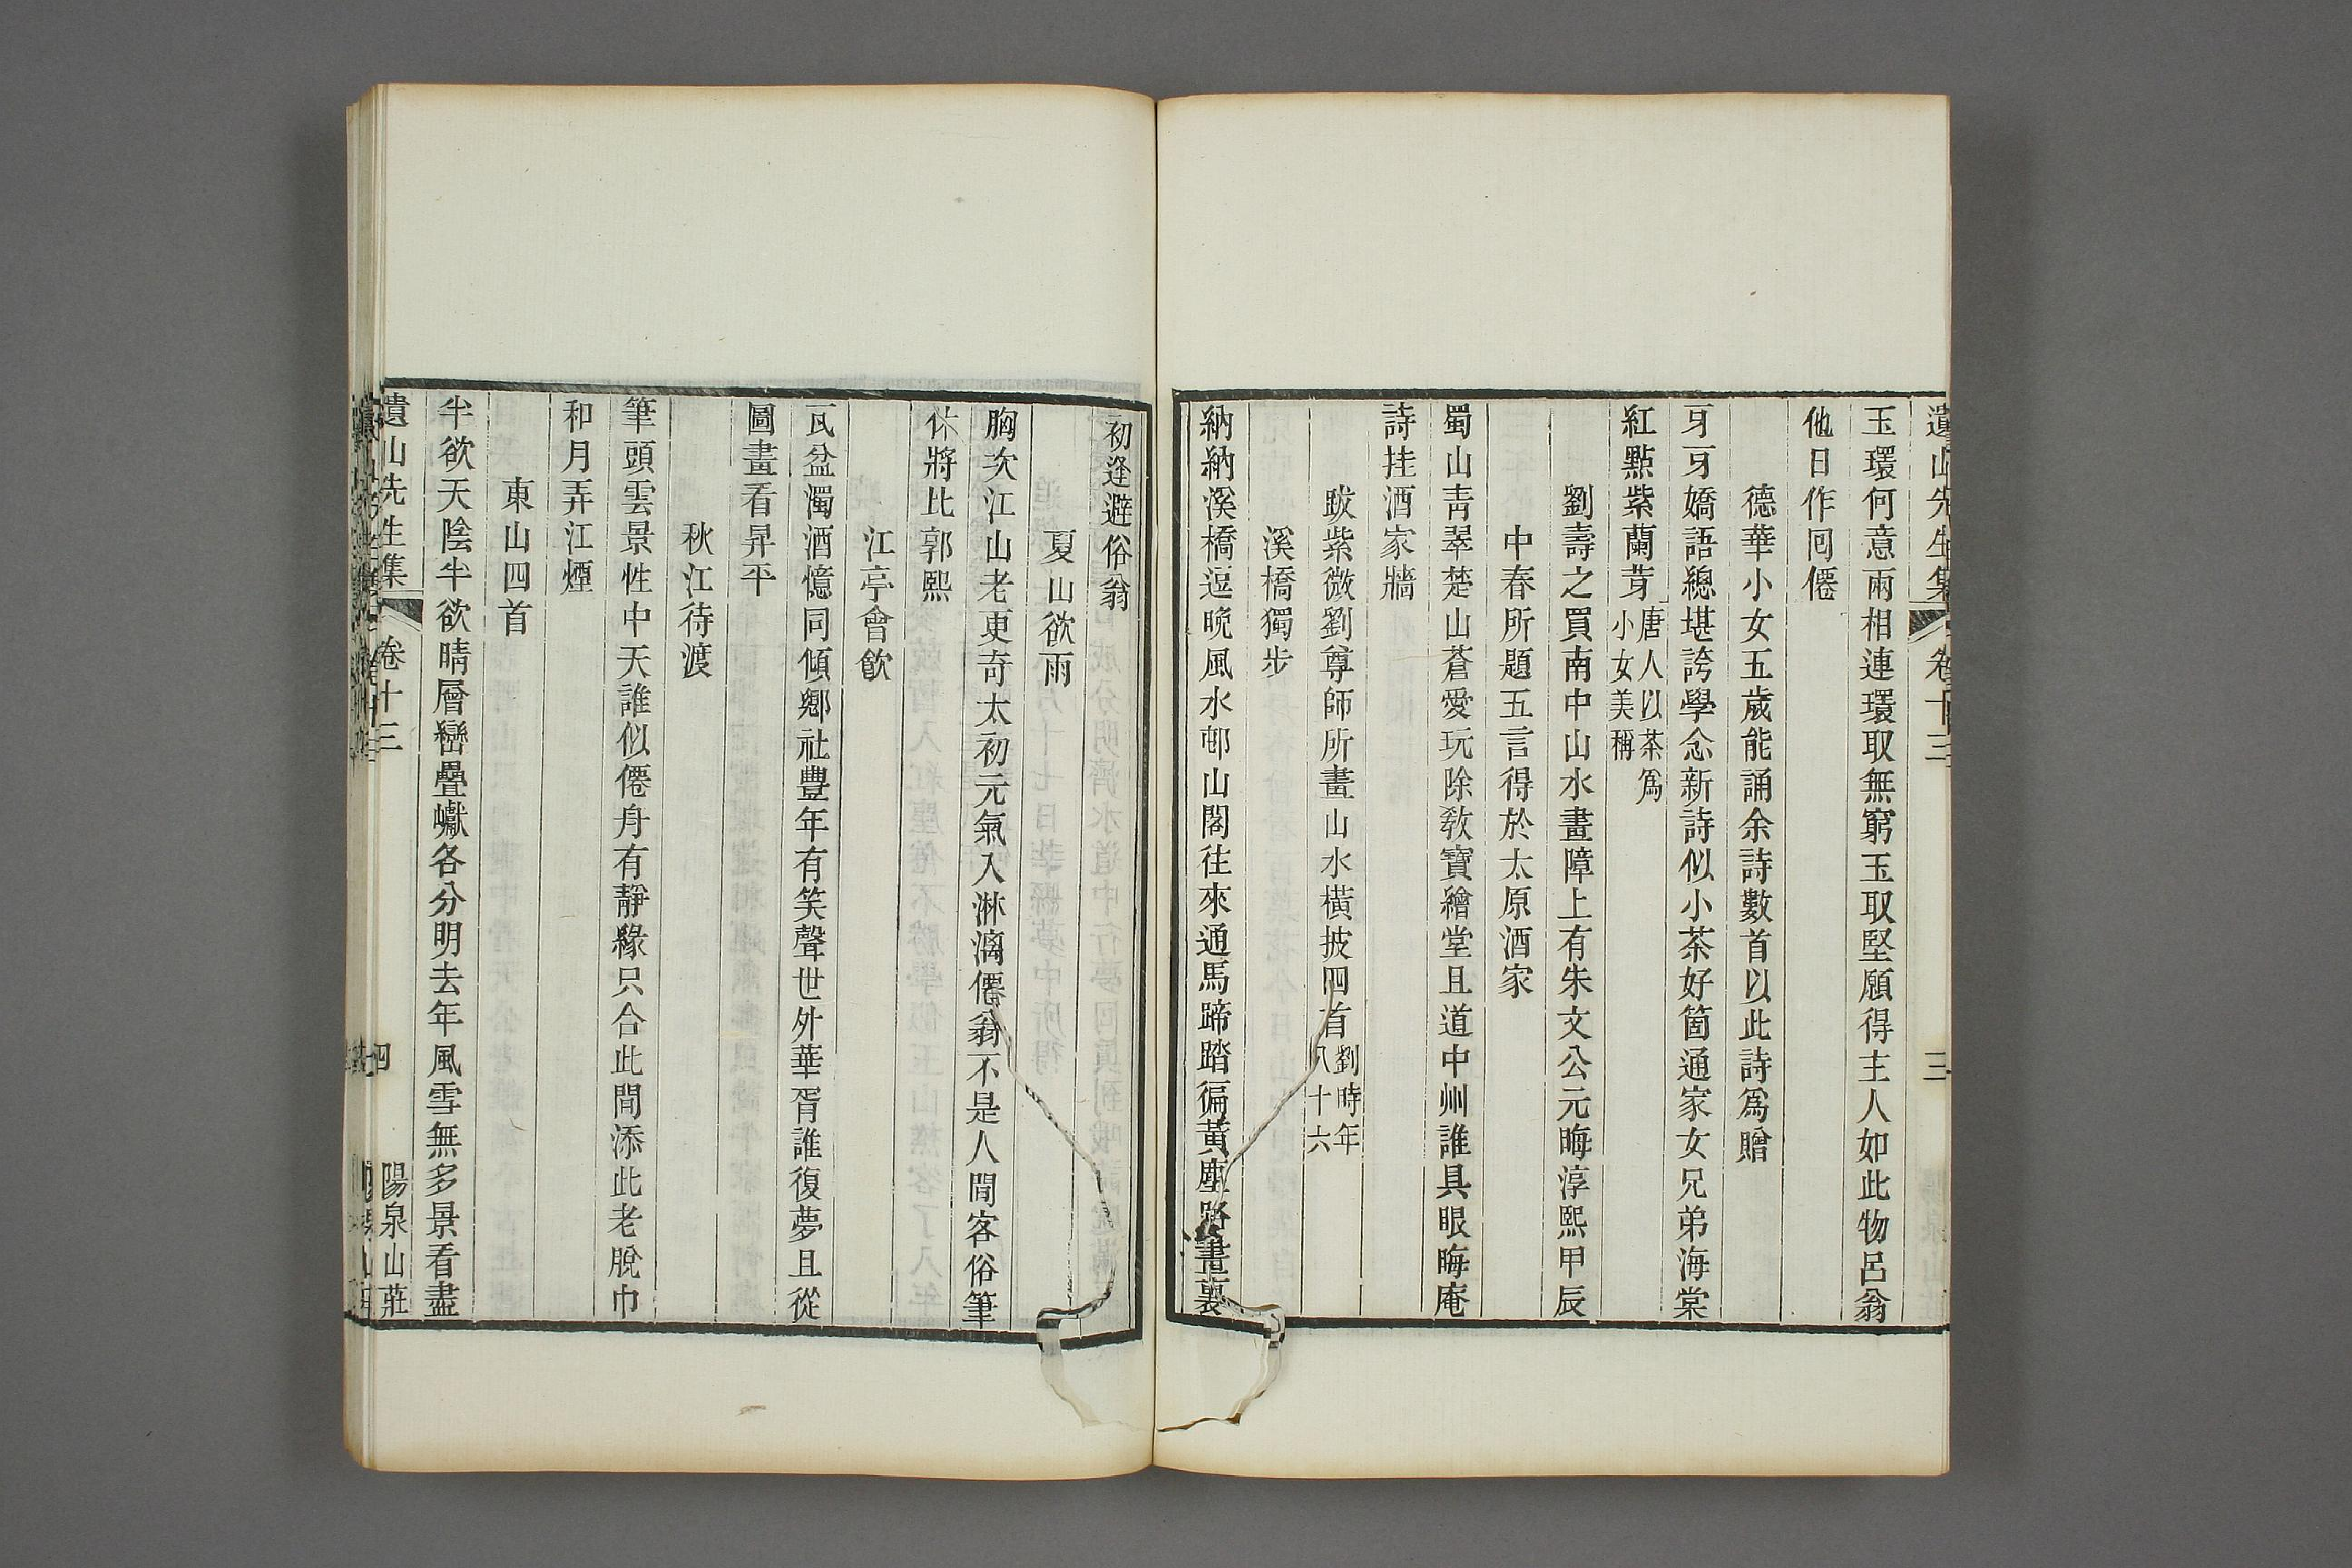 遺山先生集 卷十三 三
玉環何意兩相連環取無窮玉取堅願得主人如此物呂翁
他日作回僊
德華小女五歲能誦余詩數首以此詩爲贈
牙牙嬌語總堪誇學念新詩似小茶好箇通家女兄弟海棠
紅點紫蘭芽唐人以茶爲小女美稱
劉壽之買南中山水畫障上有朱文公元晦淳熙甲辰
中春所題五言得於太原酒家
蜀山靑翠楚山蒼愛玩除敎寶繪堂且道中州誰具眼晦庵
詩挂酒家牆
跋紫微劉尊師所畫山水橫披四首劉時年八十六
溪橋獨步
納納溪橋逗晚風水邨山閣往來通馬蹄踏徧黃塵路畫裏
初逢避俗翁
夏山欲雨
胸次江山老更奇太初元氣入淋漓僊翁不是人閒客俗筆
休將比郭熙
江亭會飮
瓦盆濁酒憶同傾鄉社豐年有笑聲世外華胥誰復夢且從
圖畫看昇平
秋江待渡
筆頭雲景性中天誰似僊舟有靜緣只合此閒添此老脫巾
和月弄江煙
東山四首
半欲天陰半欲晴層巒疊巘各分明去年風雪無多景看盡
遺山先生集 卷十三 四 陽泉山莊